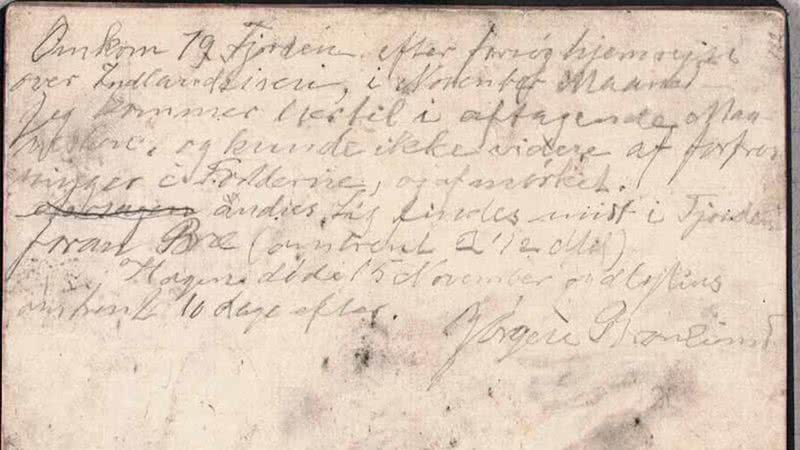 Omkom 79 Fjorden efter forsøg hjemrejse
over Indlandsisen, i November Maaned
Jeg kommer hertil i aftagende maane
og kunde ikke videre af forfrys
ninger i Fødderne, og af mørket.
andres Lig findes midt i Fjorden
foran Bræ (omtrent 2 1/2 Mil)
Hagen døde 15 November og
omtrent 10 dage efter.
Jørgen Brønlund